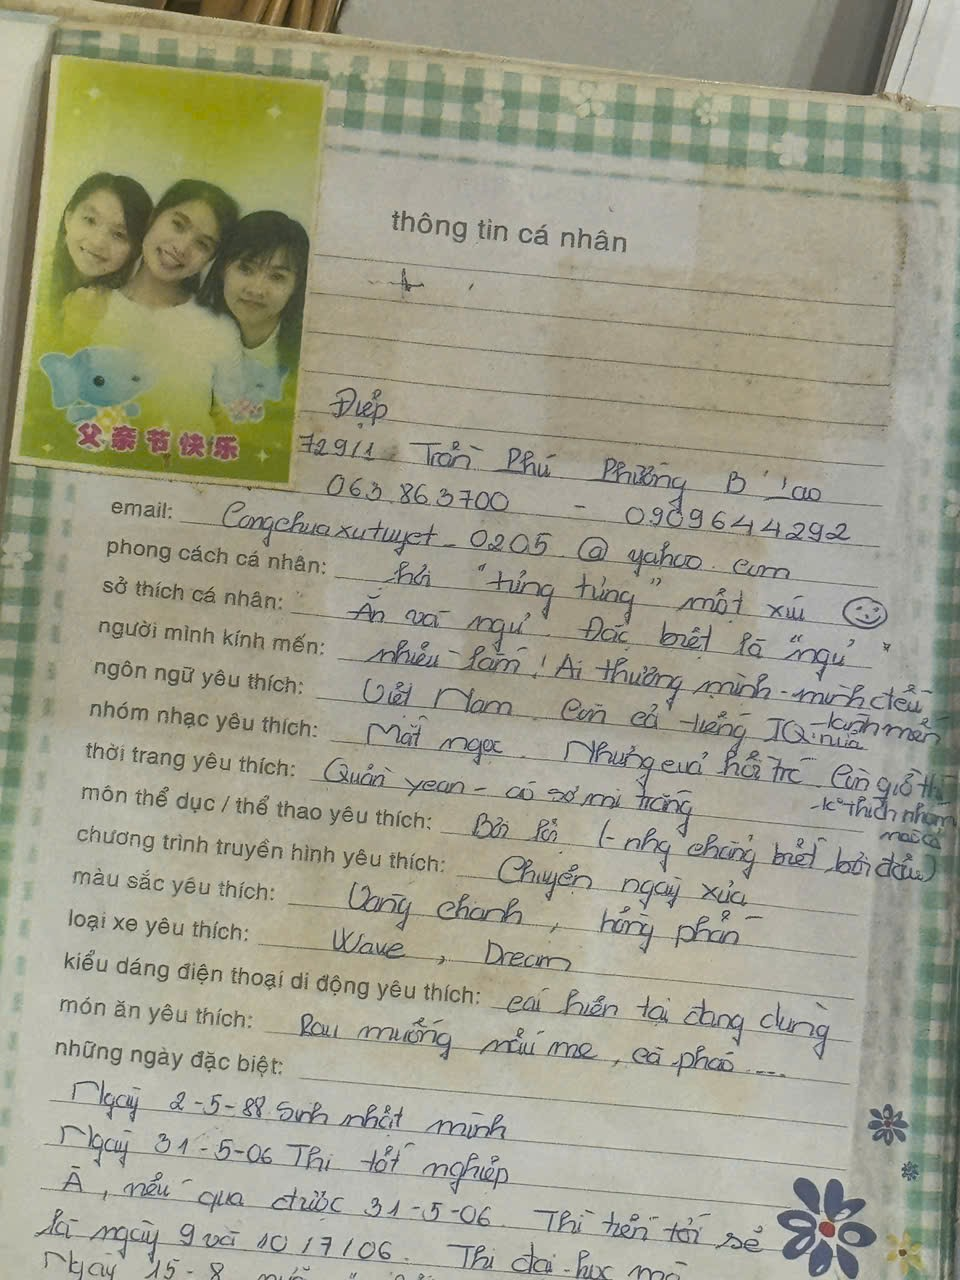 父亲节快乐
thông tin cá nhân
Điệp
729/1 Trần Phú Phường B'Lao
063.863700 - 0909644292
email: Congchuaxutuyet_0205 @ yahoo.com
phong cách cá nhân: hơi "tửng tửng" một xíu
sở thích cá nhân: Ăn và ngủ. Đặc biệt là "ngủ"
người mình kính mến: nhiều lắm! Ai thương mình - mình đều kính mến
ngôn ngữ yêu thích: Việt Nam. Còn cả tiếng IQ nữa
nhóm nhạc yêu thích: Mắt ngọc. Nhưng euả hồi trc. Còn giờ thì - k° thích nhóm nào cả
thời trang yêu thích: Quần yean - áo sơ mi trắng
môn thể dục / thể thao yêu thích: Bơi lội (- nhg chẳng biết bơi đâu)
chương trình truyền hình yêu thích: Chuyện ngày xưa
màu sắc yêu thích: Vàng chanh, hồng phấn
loại xe yêu thích: Wave, Dream
kiểu dáng điện thoại di động yêu thích: cái hiện tại đang dùng
món ăn yêu thích: Rau muống nấu me, cà pháo....
những ngày đặc biệt:
Ngày 2-5-88 sinh nhật mình
Ngày 31-5-06 Thi tốt nghiệp
À, nếu qua được 31-5-06. Thì tiến tới sẽ
là ngày 9 và 10/7/06. Thi đại học mà
Ngày 15-8